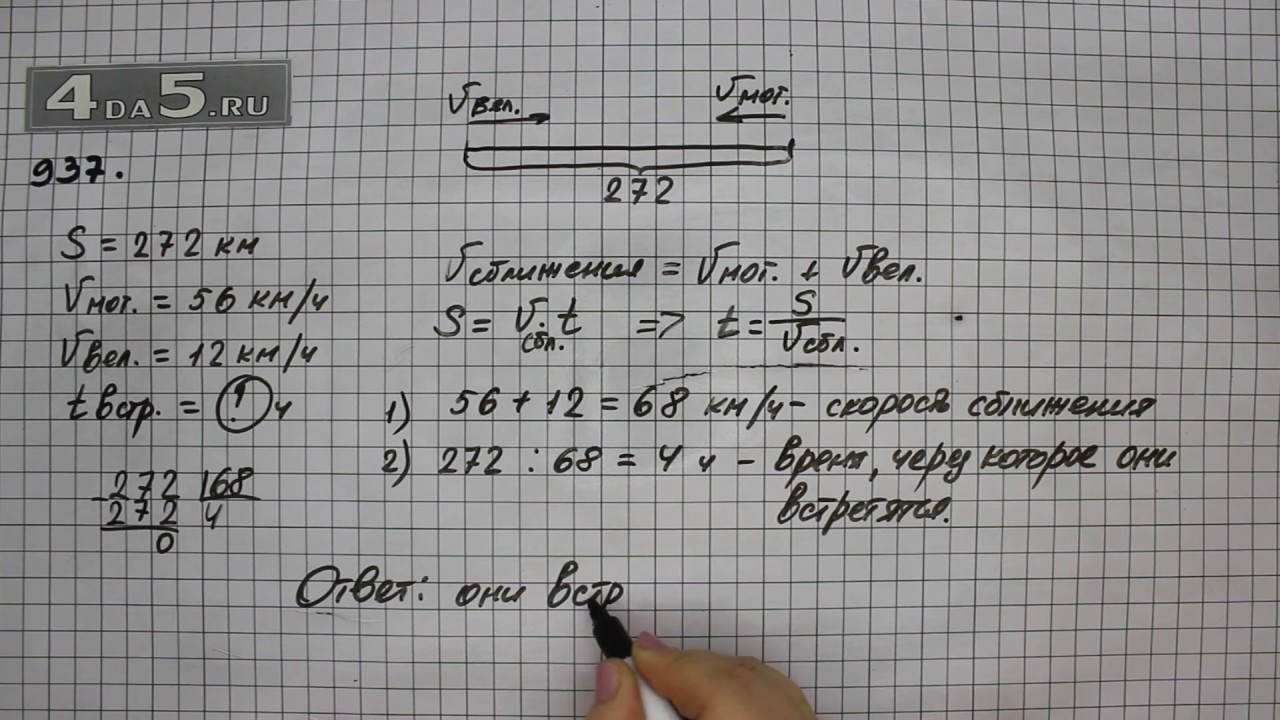 4DA5.RU
937.
Vвел. Vмот.
272
S = 272 км
Vмот. = 56 км/ч
Vвел. = 12 км/ч
t встр. = ? ч
Vсближения = Vмот. + Vвел.
S = Vсбл. · t => t = S / Vсбл.
1) 56 + 12 = 68 км/ч - скорость сближения
2) 272 : 68 = 4 ч - время, через которое они
встретятся.
- 272 | 68
272 4
0
Ответ: они встр